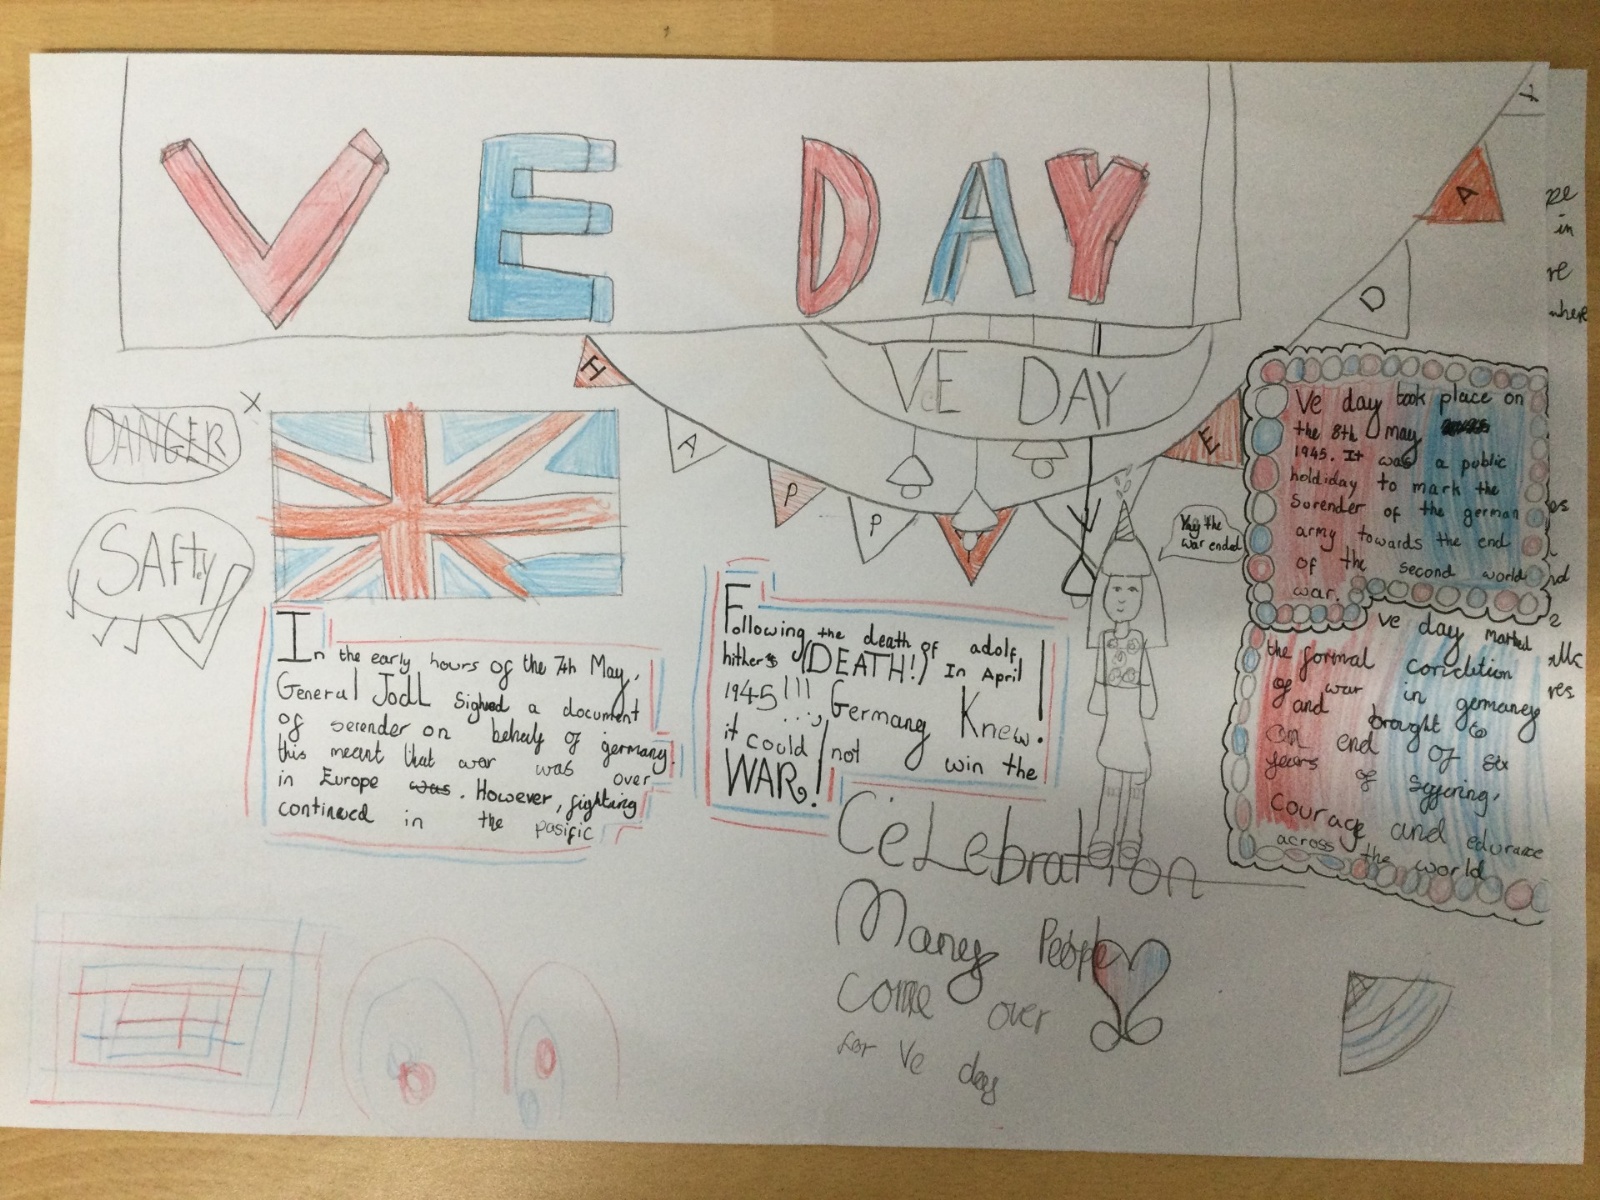 VE DAY
VE DAY
H A P P Y V E D A Y
DANGER
SAfty
Yay the
war ended
In the early hours of the 7th May,
General Jodl Signed a document
of serender on behalf of germany.
this meant that war was over
in Europe was. However, fighting
continued in the pasific
Following the death of adolf
hitlers (DEATH!) In April
1945!!!
Germany Knew.
it could not win the
WAR!
Ve day took place on
the 8th May
1945. It was a public
holdiday to mark the
Surender of the german
army towards the end
of the second world
war.
Ve day marked
the formal
of war in germaney
and brought to
an end of six
years of suffering,
courage and edurance
across the world
Celebration
Many People
come over
for Ve day
in
where